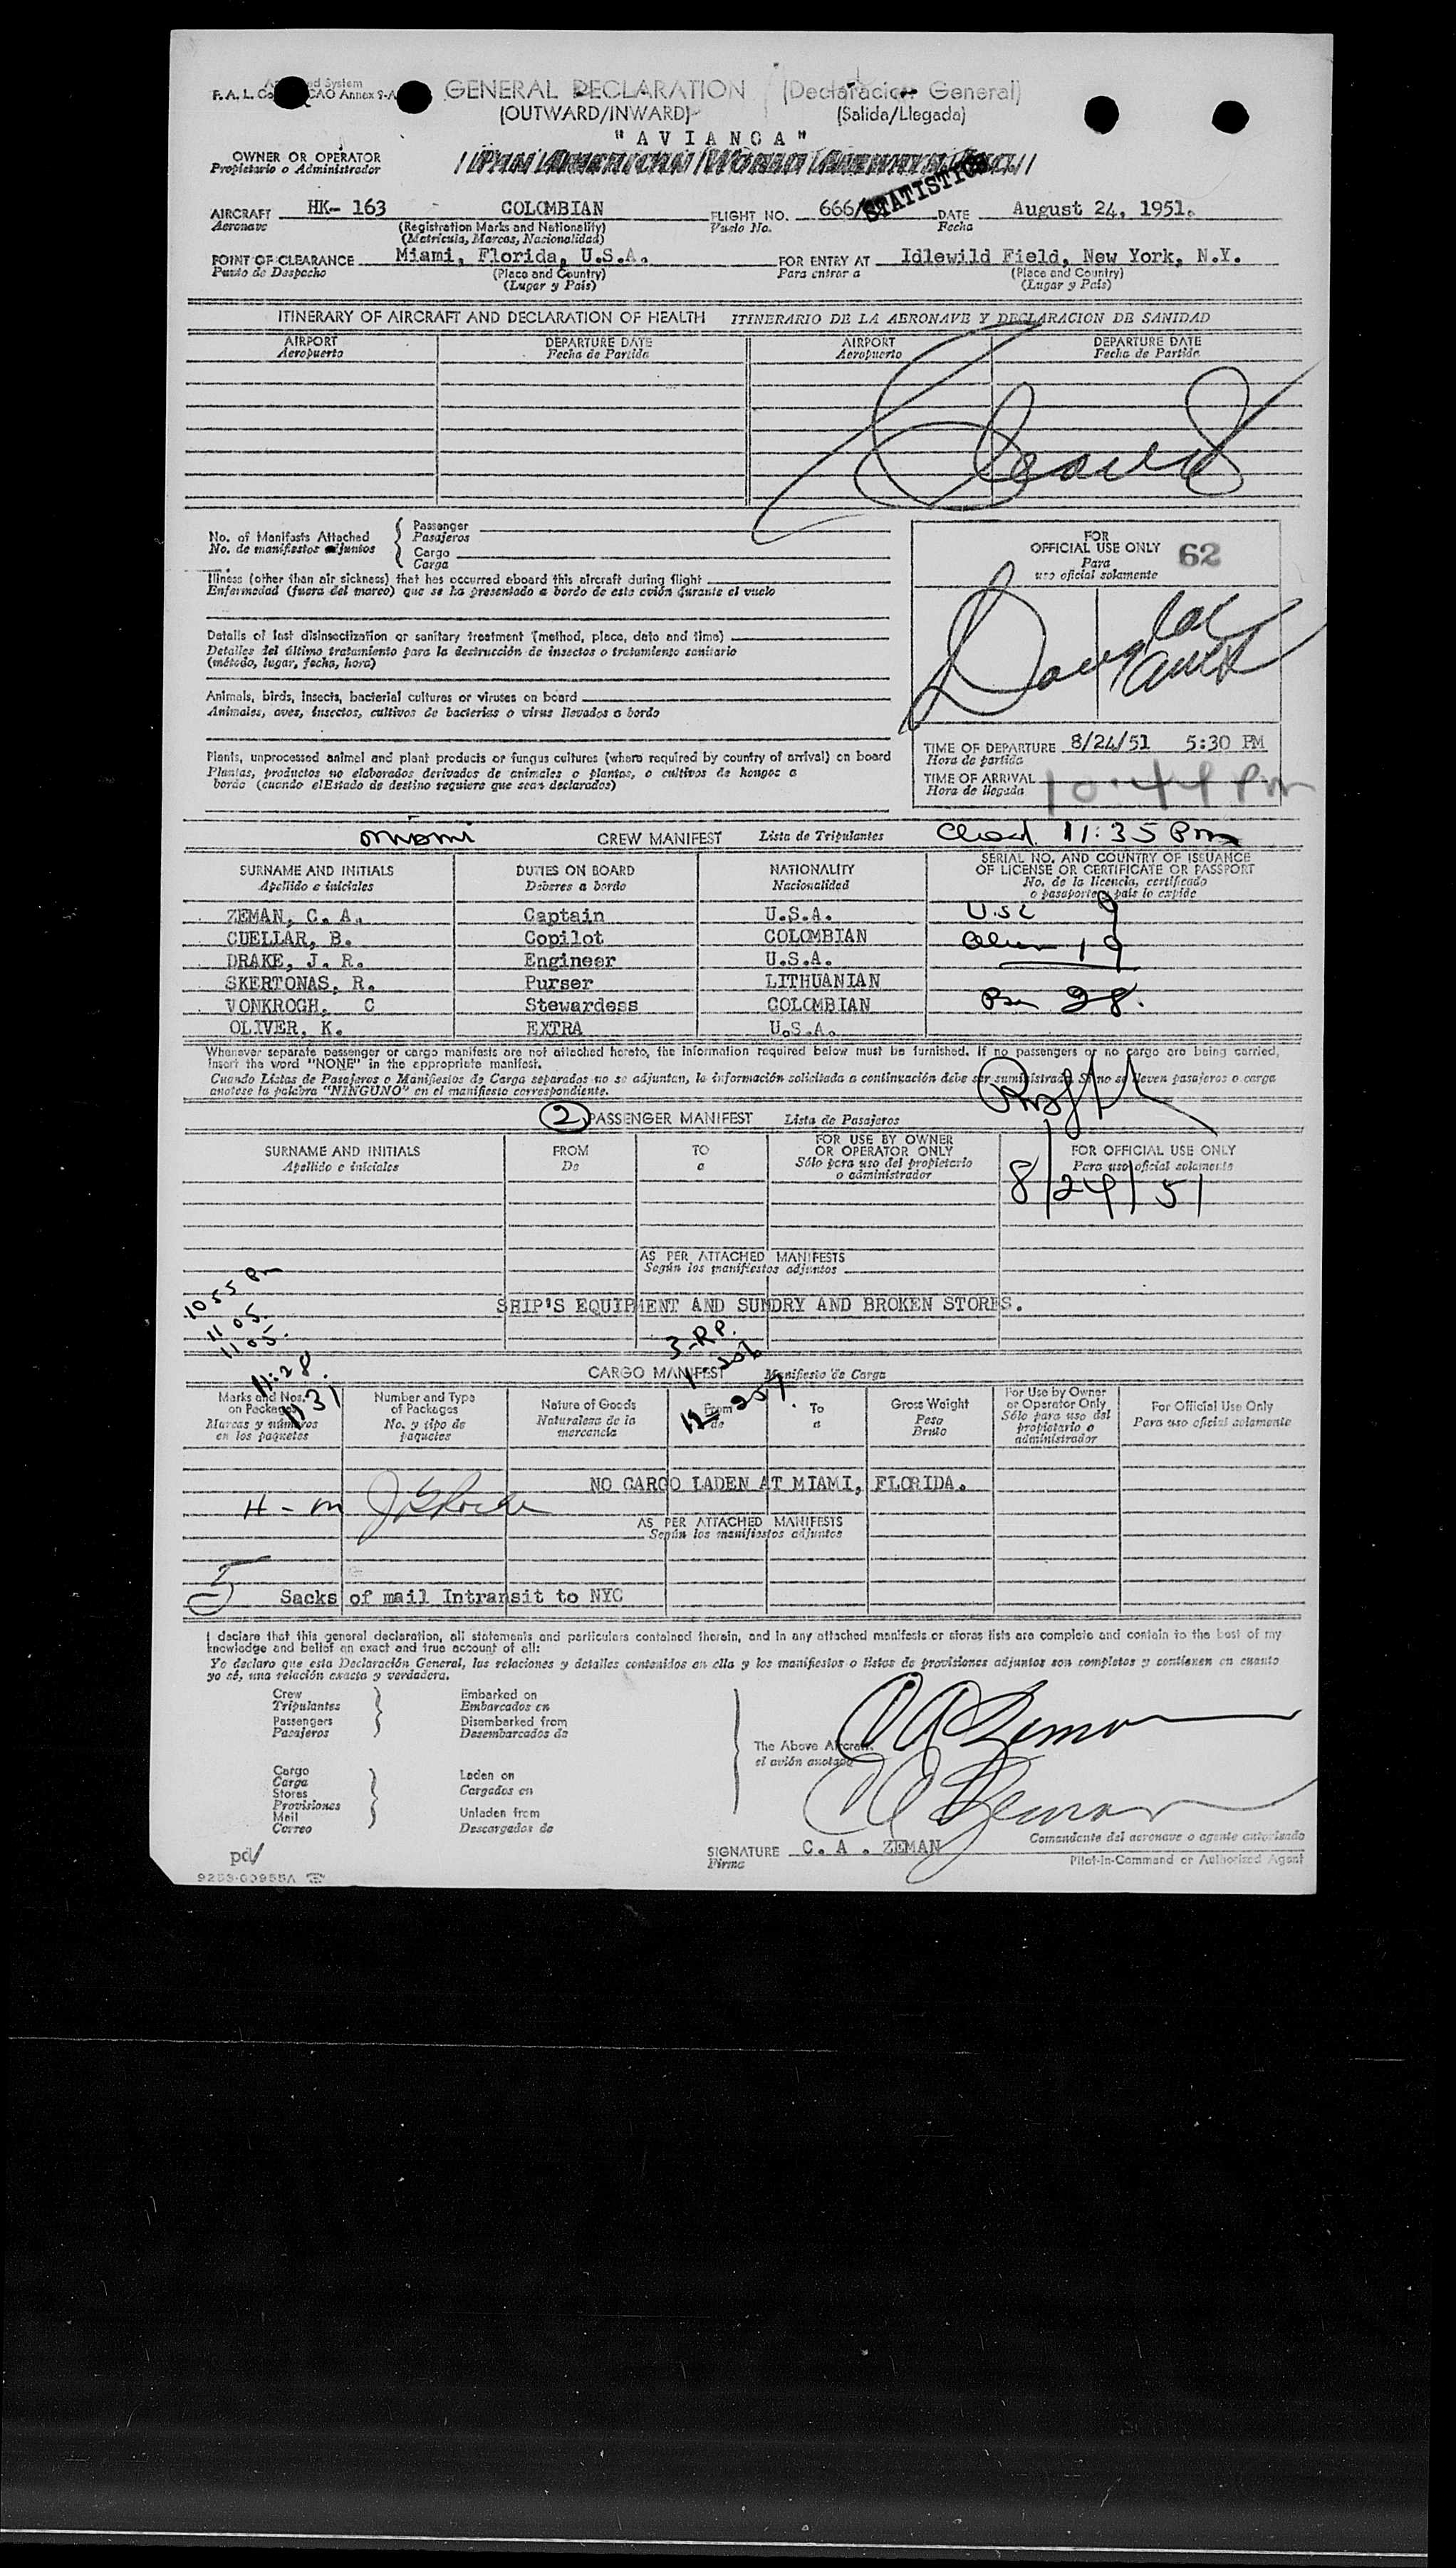 GENERAL DECLARATION (Declaración General)
F. A. L. ICAO Annex 9-A
(OUTWARD/INWARD) (Salida/Llegada)
"AVIANCA"
OWNER OR OPERATOR
Propietario o Administrador
STATISTICS
AIRCRAFT HK- 163 - COLOMBIAN FLIGHT NO. 666 DATE August 24, 1951.
Aeronave (Registration Marks and Nationality) Vuelo No. Fecha
(Matricula, Marcas, Nacionalidad)
POINT OF CLEARANCE Miami, Florida, U.S.A. FOR ENTRY AT Idlewild Field, New York, N.Y.
Punto de Despacho (Place and Country) Para entrar a (Place and Country)
(Lugar y País) (Lugar y País)
ITINERARY OF AIRCRAFT AND DECLARATION OF HEALTH ITINERARIO DE LA AERONAVE Y DECLARACION DE SANIDAD
AIRPORT DEPARTURE DATE AIRPORT DEPARTURE DATE
Aeropuerto Fecha de Partida Aeropuerto Fecha de Partida
No. of Manifests Attached
No. de manifiestos adjuntos
Passenger
Pasajeros
Cargo
Carga
FOR
OFFICIAL USE ONLY 62
Para
uso oficial solamente
Illness (other than air sickness) that has occurred aboard this aircraft during flight
Enfermedad (fuera del mareo) que se ha presentado a bordo de este avión durante el vuelo
Details of last disinsectization or sanitary treatment (method, place, date and time)
Detalles del último tratamiento para la destrucción de insectos o tratamiento sanitario
(método, lugar, fecha, hora)
Animals, birds, insects, bacterial cultures or viruses on board
Animales, aves, insectos, cultivos de bacterias o virus llevados a bordo
Plants, unprocessed animal and plant products or fungus cultures (where required by country of arrival) on board
Plantas, productos no elaborados derivados de animales o plantas, o cultivos de hongos a
bordo (cuando el Estado de destino requiere que sean declarados)
TIME OF DEPARTURE 8/24/51 5:30 PM
Hora de partida
TIME OF ARRIVAL 10:44 Pm
Hora de llegada
Miami CREW MANIFEST Lista de Tripulantes 11:35 Pm
SURNAME AND INITIALS DUTIES ON BOARD NATIONALITY SERIAL NO. AND COUNTRY OF ISSUANCE
OF LICENSE OR CERTIFICATE OR PASSPORT
Apellido e iniciales Deberes a bordo Nacionalidad No. de la licencia, certificado
o pasaporte y país lo expide
ZEMAN, C. A. Captain U.S.A. 9
CUELLAR, B. Copilot COLOMBIAN 19
DRAKE, J. R. Engineer U.S.A.
SKERTONAS, R. Purser LITHUANIAN
VONKROGH, C Stewardess COLOMBIAN 28.
OLIVER, K. EXTRA U.S.A.
Whenever separate passenger or cargo manifests are not attached hereto, the information required below must be furnished. If no passengers or no cargo are being carried,
insert the word "NONE" in the appropriate manifest.
Cuando Listas de Pasajeros o Manifiestos de Carga separados no se adjuntan, la información solicitada a continuación debe ser suministrada. Si no se lleven pasajeros o carga
anotese la palabra "NINGUNO" en el manifiesto correspondiente.
2 PASSENGER MANIFEST Lista de Pasajeros
SURNAME AND INITIALS FROM TO FOR USE BY OWNER
OR OPERATOR ONLY FOR OFFICIAL USE ONLY
Apellido e iniciales De a Sólo para uso del propietario
o administrador Para uso oficial solamente
8/24/51
AS PER ATTACHED MANIFESTS
Según los manifiestos adjuntos
10 55 Pm
11 05
11 05.
11:28.
11:31
SHIP'S EQUIPMENT AND SUNDRY AND BROKEN STORES.
3-RP.
CARGO MANIFEST Manifiesto de Carga
Marks and Nos.
on Packages
Marcas y números
en los paquetes
Number and Type
of Packages
No. y tipo de
paquetes
Nature of Goods
Naturaleza de la
mercancia
From
de
To
a
Gross Weight
Peso
Bruto
For Use by Owner
or Operator Only
Sólo para uso del
propietario o
administrador
For Official Use Only
Para uso oficial solamente
NO CARGO LADEN AT MIAMI, FLORIDA.
H - M
AS PER ATTACHED MANIFESTS
Según los manifiestos adjuntos
5 Sacks of mail Intransit to NYC
I declare that this general declaration, all statements and particulars contained therein, and in any attached manifests or stores lists are complete and contain to the best of my
knowledge and belief an exact and true account of all:
Yo declaro que esta Declaración General, las relaciones y detalles contenidos en ella y los manifiestos o listas de provisiones adjuntos son completos y contienen en cuanto
yo sé, una relación exacta y verdadera.
Crew
Tripulantes
Passengers
Pasajeros
Embarked on
Embarcados en
Disembarked from
Desembarcados de
Cargo
Carga
Stores
Provisiones
Mail
Correo
Laden on
Cargados en
Unladen from
Descargados de
The Above Aircraft.
el avión anotado
C A Zeman
C A Zeman
SIGNATURE C. A . ZEMAN
Firma
Comandante del aeronave o agente autorizado
Pilot-in-Command or Authorized Agent
pd/